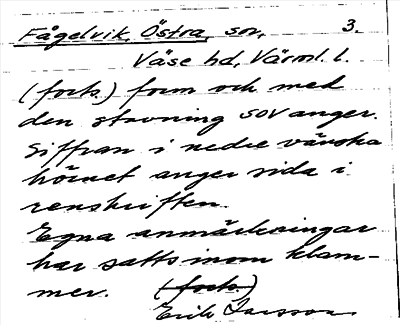 Fågelvik, Östra, sov, 3.
Väse hd, Värml. l.
(forts.) form och med
den stavning SOV anger.
Siffran i nedre vänstra
hörnet anger sida i
renskriften.
Egna anmärkningar
har satts inom klam-
mer. (forts.)
Erik Larsson